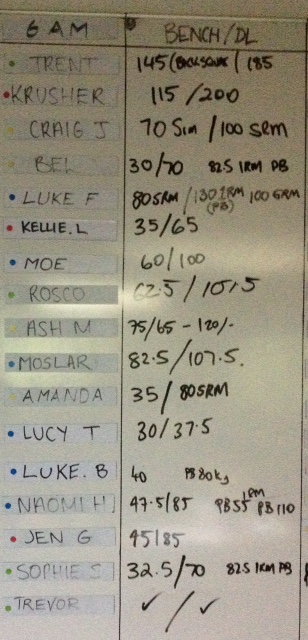 6 AM BENCH/DL
TRENT 145 (BACK SQUAT) 185
KRUSHER 115/200
CRAIG J 70 5RM /100 5RM
BEL 30/70 82.5 1RM PB
LUKE F 80 5RM /130 1RM (PB) 100 6RM
KELLIE.L 35/65
MOE 60/100
ROSCO 62.5/107.5
ASH M 75/65 - 120/-
MOSLAR 82.5/107.5.
AMANDA 35/ 80 5RM
LUCY T 30/37.5
LUKE. B 40 PB 80kg
NAOMI H 47.5/85 PB 55 1RM PB 110
JEN G 45/85
SOPHIE S 32.5/70 82.5 1RM PB
TREVOR ✓/✓